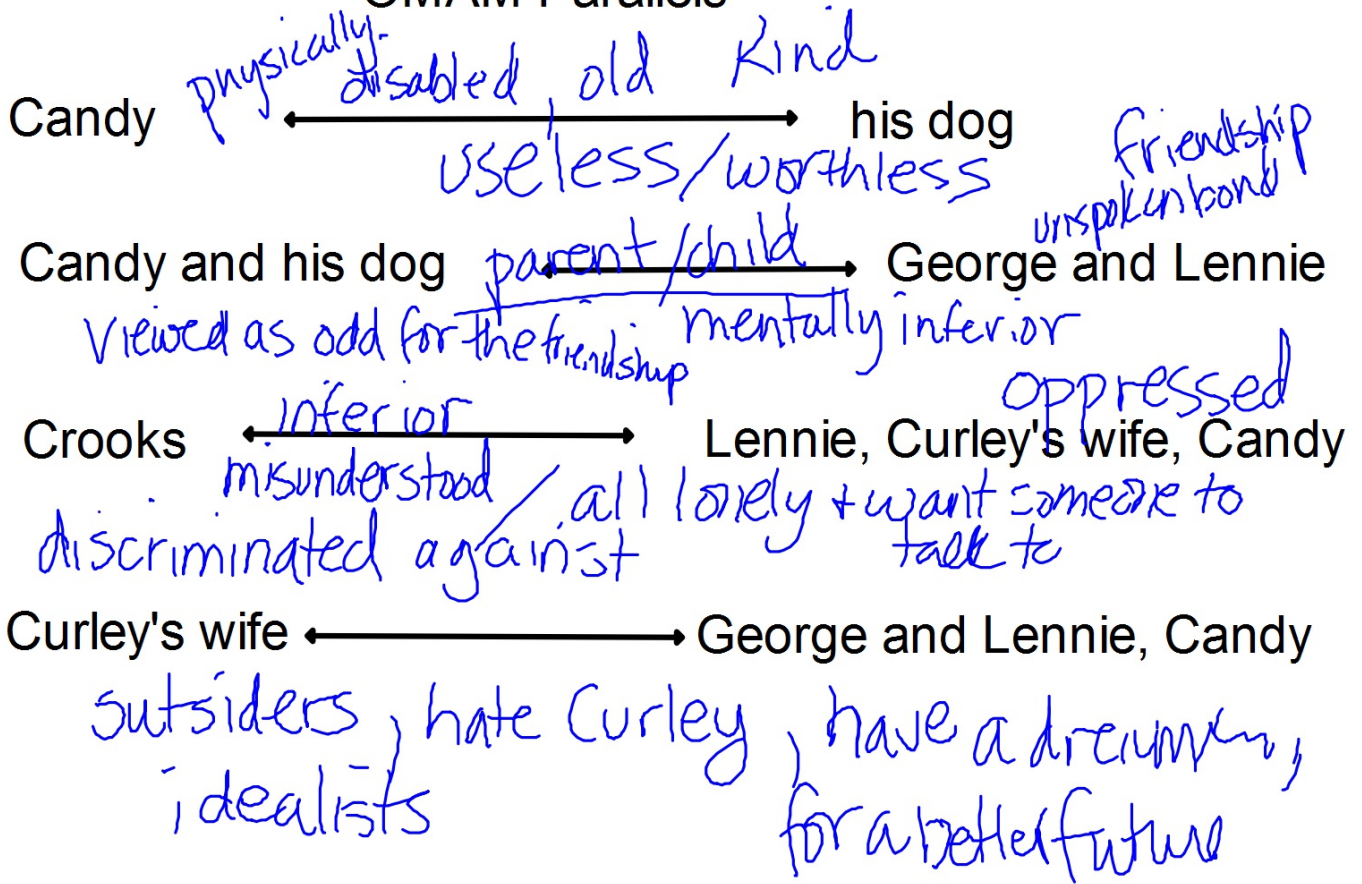 OMAM Parallels
physically disabled, old Kind
Candy his dog
useless/worthless
friendship
unspoken bond
Candy and his dog parent/child George and Lennie
viewed as odd for the friendship mentally inferior
oppressed
inferior
Crooks Lennie, Curley's wife, Candy
misunderstood / all lonely + want someone to
discriminated against talk to
Curley's wife George and Lennie, Candy
outsiders, hate Curley, have a dream,
idealists for a better future